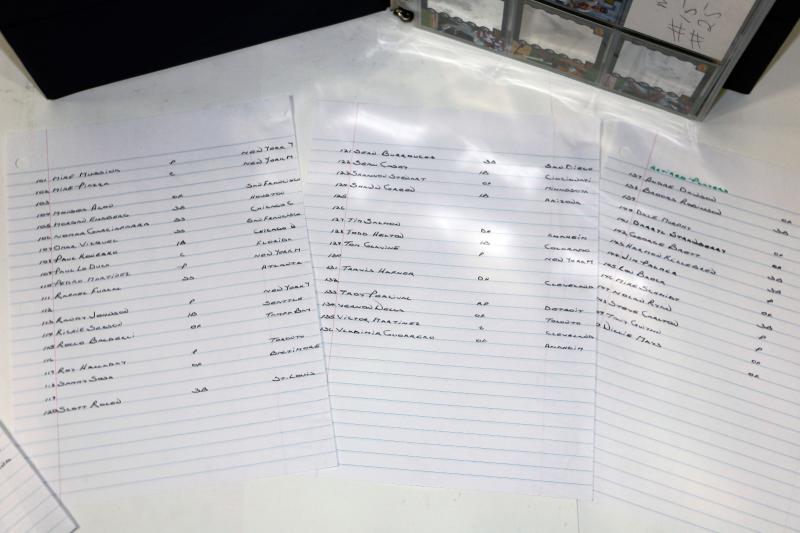 #
#
101. MIKE MUSSINA P NEW YORK Y
102. MIKE PIAZZA C NEW YORK M
103.
104. MOISES ALOU OF SAN FRANCISCO
105. MORGAN ENSBERG 3B HOUSTON
106. NOMAR GARCIAPARRA SS CHICAGO C
107. OMAR VIZQUEL SS SAN FRANCISCO
108. PAUL KONERKO 1B CHICAGO
109. PAUL LO DUCA C FLORIDA
110. PEDRO MARTINEZ P NEW YORK M
111. RAFAEL FURCAL SS ATLANTA
112.
113. RANDY JOHNSON P NEW YORK Y
114. RICHIE SEXSON 1B SEATTLE
115. ROCCO BALDELLI OF TAMPA BAY
116.
117. ROY HALLADAY P TORONTO
118. SAMMY SOSA OF BALTIMORE
119.
120. SCOTT ROLEN 3B ST. LOUIS
121. SEAN BURROUGHS 3B SAN DIEGO
122. SEAN CASEY 1B CINCINNATI
123. SHANNON STEWART OF MINNESOTA
124. SHAWN GREEN 1B ARIZONA
125.
126.
127. TIM SALMON OF ANAHEIM
128. TODD HELTON 1B COLORADO
129. TOM GLAVINE P NEW YORK M
130.
131. TRAVIS HAFNER DH CLEVELAND
132.
133. TROY PERCIVAL RP DETROIT
134. VERNON WELLS OF TORONTO
135. VICTOR MARTINEZ C CLEVELAND
136. VLADIMIR GUERRERO OF ANAHEIM
RETIRED PLAYERS
137. ANDRE DAWSON OF
138. BROOKS ROBINSON 3B
139.
DALE MURPHY OF
141. DARRYL STRAWBERRY OF
142. GEORGE BRETT 3B
HARMON KILLEBREW 3B
JIM PALMER P
LOU BROCK OF
MIKE SCHMIDT 3B
NOLAN RYAN P
STEVE CARLTON P
TONY GWYNN OF
WILLIE MAYS OF